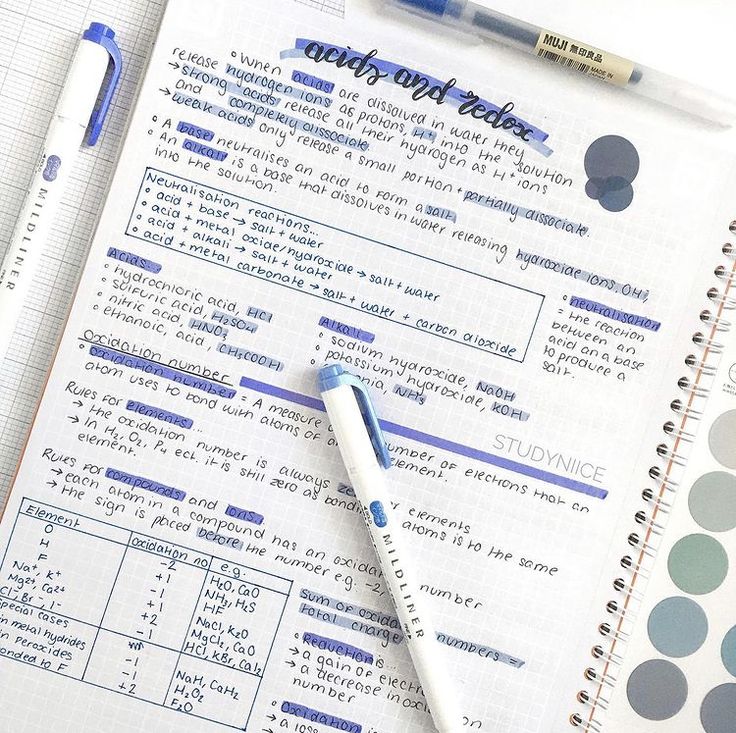 MUJI 無印良品
MADE IN
acids and redox
° When acids are dissolved in water they
release hydrogen ions as protons, H+ into the solution
→ strong acids release all their hydrogen as H+ ions
and completely dissociate.
→ weak acids only release a small portion + partially dissociate.
° A base neutralises an acid to form a salt.
° An alkali is a base that dissolves in water releasing hydroxide ions, OH-,
into the solution.
Neutralisation reactions...
° acid + base → salt + water
° acid + metal oxide/hydroxide → salt + water
° acid + alkali → salt + water
° acid + metal carbonate → salt + water + carbon dioxide
neutralisation
= the reaction
between an
acid an a base
to produce a
salt.
Acids...
° hydrochloric acid, HCl
° sulfuric acid, H2SO4
° nitric acid, HNO3
° ethanoic, acid, CH3COOH
Alkali...
° sodium hydroxide, NaOH
° potassium hydroxide, KOH
° nia, NH3
Oxidation number
° oxidation number = A measure number of electrons that an
atom uses to bond with atoms of element.
STUDYNIICE
Rules for elements...
→ the oxidation number is always elements
→ In H2, O2, P4 ect. it is still zero as bond atoms is to the same
element.
Rules for compounds and ions...
→ each atom in a compound has an oxidat number
→ the sign is placed before the number e.g. -2,
Element oxidation no e.g.
O -2 H2O, CaO
H +1 NH3, H2S
F -1 HF
Na+, K+ +1 NaCl, K2O
Mg2+, Ca2+ +2 MgCl2, CaO
Cl-, Br-, I- -1 HCl, KBr, CaI2
special cases
in metal hydrides -1 NaH, CaH2
in peroxides -1 H2O2
bonded to F +2 F2O
Sum of oxida numbers =
total charge
° Reduction is...
→ a gain of electr
→ a decrease in oxidat on
number
° Oxidation is
→ a loss
MILDLINER
MILDLINER